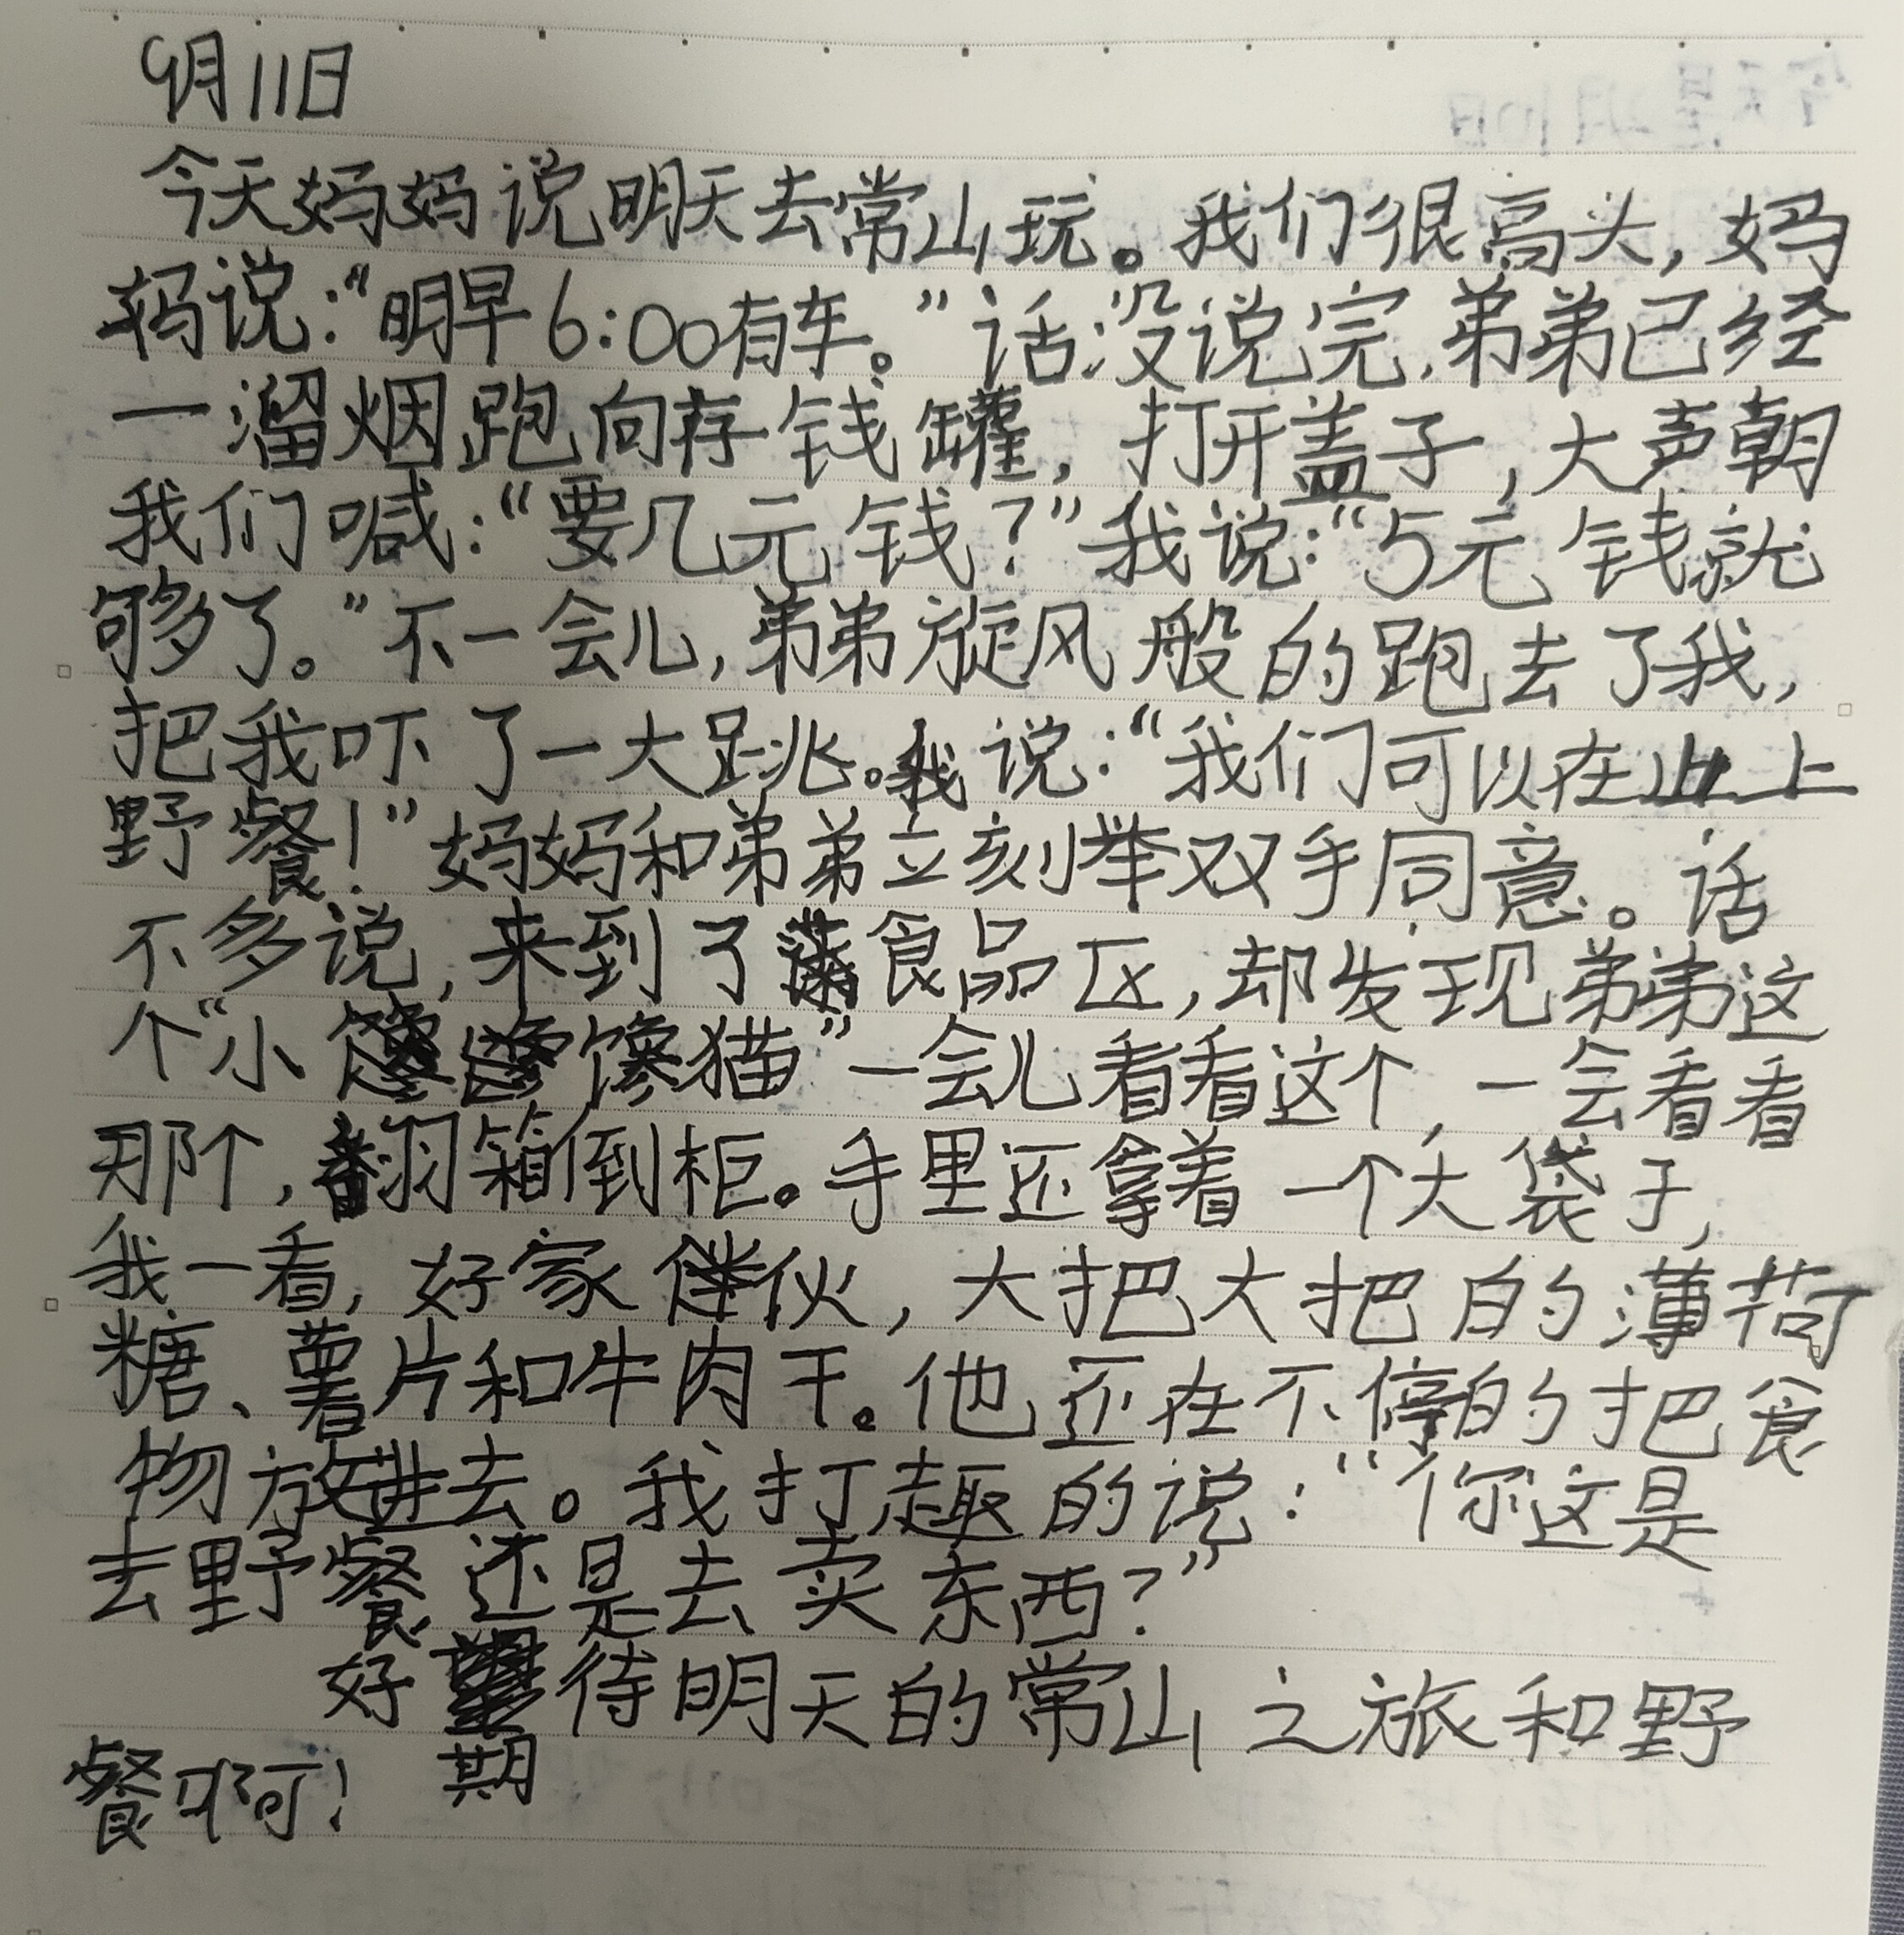 9月11日
今天妈妈说明天去常山玩。我们很高头，妈
妈说：“明早6:00有车。”话没说完，弟弟已经
一溜烟跑向存钱罐，打开盖子，大声朝
我们喊：“要几元钱？”我说：“5元钱就
够了。”不一会儿，弟弟旋风般的跑去了我，
把我吓了一大跳。我说：“我们可以在山上
野餐！”妈妈和弟弟立刻举双手同意。话
不多说，来到了食品区，却发现弟弟这
个“小馋猫”一会儿看看这个，一会看看
那个，翻箱倒柜。手里还拿着一个大袋子，
我一看，好家伙，大把大把的薄荷
糖、薯片和牛肉干。他还在不停的把食
物放进去。我打趣的说：“你这是
去野餐还是去卖东西？”
好期待明天的常山之旅和野
餐啊！